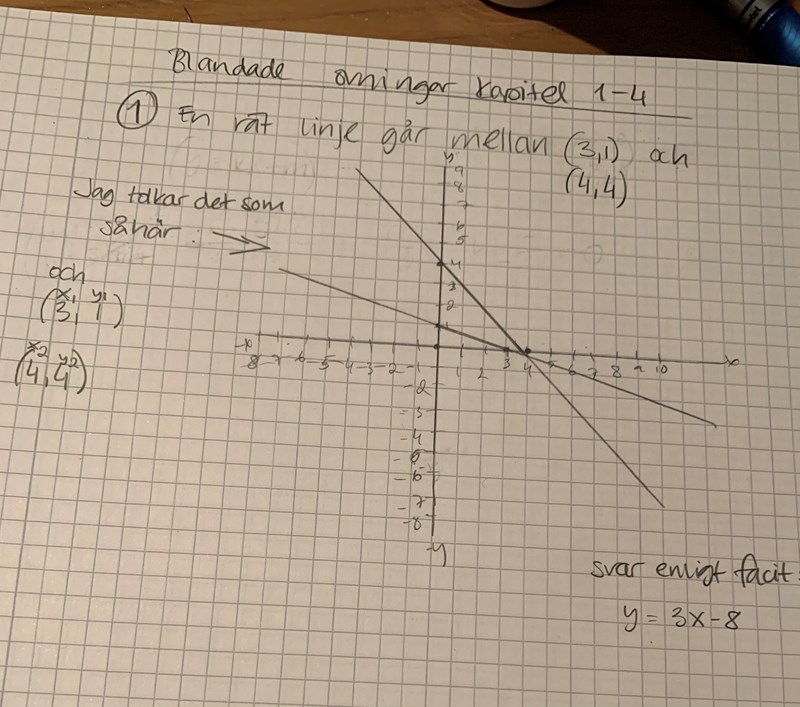 Blandade övningar kapitel 1-4
① En rät linje går mellan (3,1) och
(4,4)
Jag tolkar det som
såhär: =>
och
x1 y1
(3, 1)
x2 y2
(4, 4)
y
9
8
7
6
5
4
3
2
1
-x -8 -7 -6 -5 -4 -3 -2 -1 1 2 3 4 5 6 7 8 9 10 x
-2
-3
-4
-5
-6
-7
-8
-y
svar enligt facit:
y = 3x-8